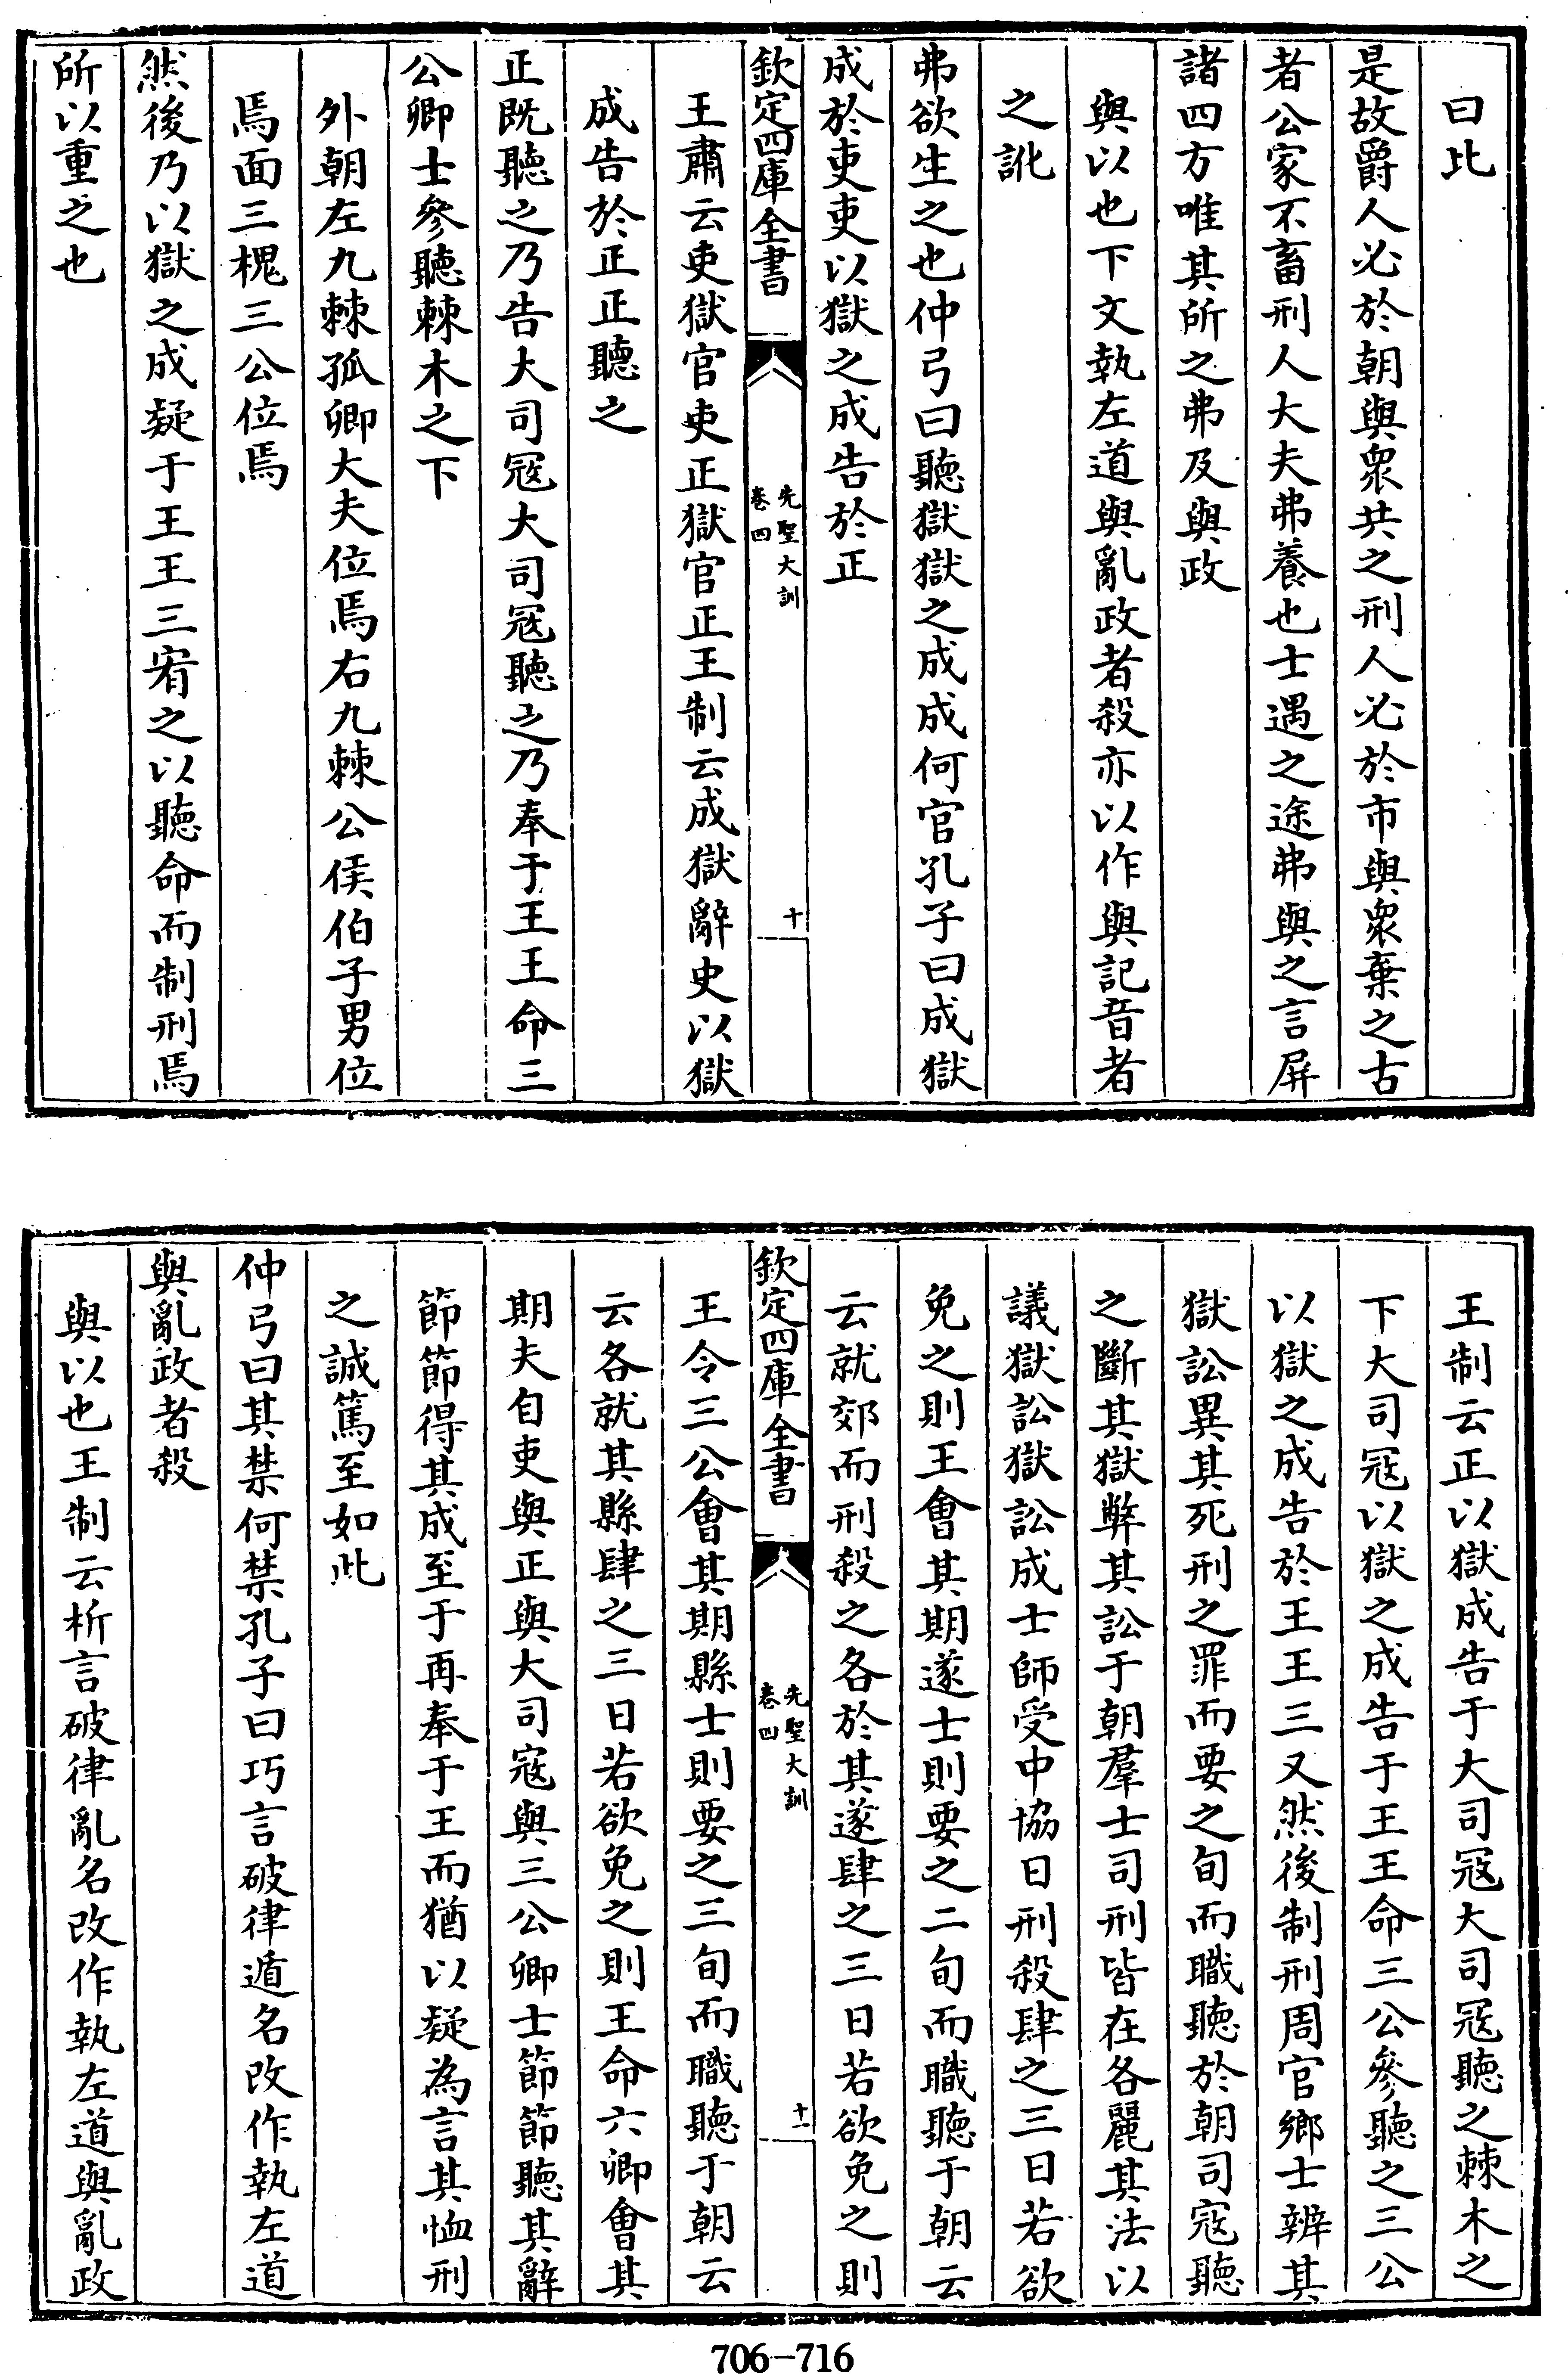 曰比
是故爵人必於朝與衆共之刑人必於市與衆棄之古
者公家不畜刑人大夫弗養也士遇之途弗與之言屏
諸四方唯其所之弗及與政
與以也下文執左道與亂政者殺亦以作與記音者
之訛
弗欲生之也仲弓曰聽獄獄之成成何官孔子曰成獄
成於吏吏以獄之成告於正
欽定四庫全書
先聖大訓
卷四
十
王肅云吏獄官吏正獄官正王制云成獄辭史以獄
成告於正正聽之
正既聽之乃告大司寇大司寇聽之乃奉于王王命三
公卿士參聽棘木之下
外朝左九棘孤卿大夫位焉右九棘公侯伯子男位
焉面三槐三公位焉
然後乃以獄之成疑于王王三宥之以聽命而制刑焉
所以重之也
王制云正以獄成告于大司寇大司寇聽之棘木之
下大司寇以獄之成告于王王命三公參聽之三公
以獄之成告於王王三又然後制刑周官鄉士辨其
獄訟異其死刑之罪而要之旬而職聽於朝司寇聽
之斷其獄弊其訟于朝羣士司刑皆在各麗其法以
議獄訟獄訟成士師受中協日刑殺肆之三日若欲
免之則王會其期遂士則要之二旬而職聽于朝云
云就郊而刑殺之各於其遂肆之三日若欲免之則
欽定四庫全書
先聖大訓
卷四
十一
王令三公會其期縣士則要之三旬而職聽于朝云
云各就其縣肆之三日若欲免之則王命六卿會其
期夫自吏與正與大司寇與三公卿士節節聽其辭
節節得其成至于再奉于王而猶以疑為言其恤刑
之誠篤至如此
仲弓曰其禁何禁孔子曰巧言破律遁名改作執左道
與亂政者殺
與以也王制云析言破律亂名改作執左道與亂政
706-716